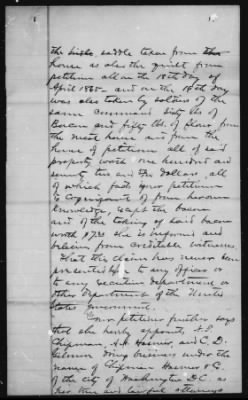 the bridle, saddle taken from the
house as also the quilt from
petitioner all on the 18th day of
April 1865 - and on the 18th day
was also taken by soldiers of the
same command Sixty lbs of
Bacon and fifty lbs of flour from
the meat house, and from the
house of petitioner all of said
property worth one hundred and
seventy two and Dollars, all
of which facts your petitioner
is cognizant of from her own
knowledge, except the bacon
and of the taking of said bacon
worth she is informed and
believes from creditable witnesses
That this claim has never been
presented to any officer or
to any Executive department or
other Department of the United
States Government.
Your petitioner further says
that she hereby appoints, N.P.
Chipman, A.A. Hosmer, and C.D.
Gilmore doing business under the
name of Chipman Hosmer & Co
of the city of Washington D.C. as
her true and lawful attorneys